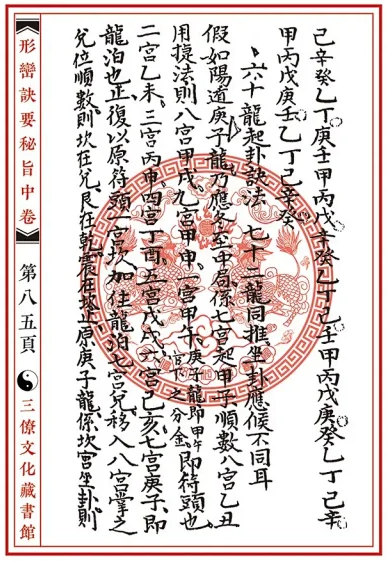 己辛癸乙丁庚壬甲丙戊辛癸乙丁己壬甲丙戊庚癸乙丁己辛
甲丙戊庚壬乙丁己辛癸
六十龍起卦訣法 七十二龍同推坐卦應候不同耳
假如陽遁庚子龍乃應冬至中局係七宮起甲子順數八宮乙丑
用捷法則八宮甲戌九宮甲申一宮甲午庚子龍即甲午宮下之分金即符頭也
二宮乙未三宮丙申四宮丁酉五宮戊戌六宮己亥七宮庚子即
龍泊也正復以原符頭一宮坎加往龍泊七宮兌移入八宮掌之
兌位順數則坎在兌艮在乾震在坎也原庚子龍係坎宮坐卦則
形巒訣要秘旨中卷 第八五頁 三僚文化藏書館